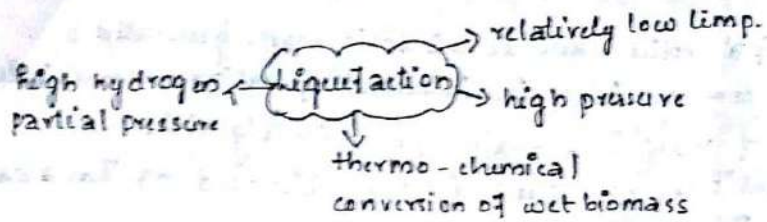 relatively low limp.
high hydrogen
partial pressure
liquefaction
high pressure
thermo-chemical
conversion of wet biomass